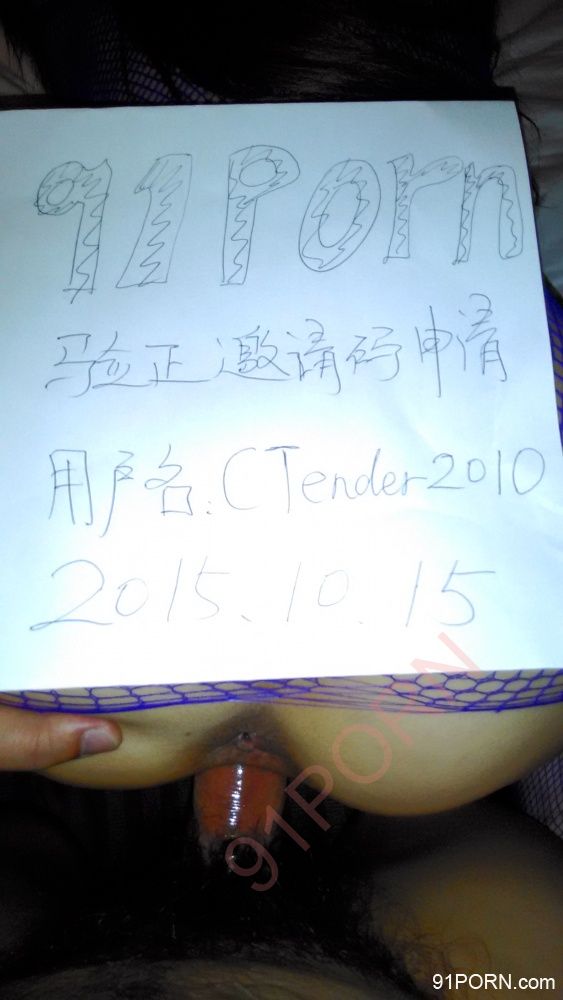 91Porn
验正邀请码申请
用户名:CTender2010
2015.10.15
91PORN
91PORN.com